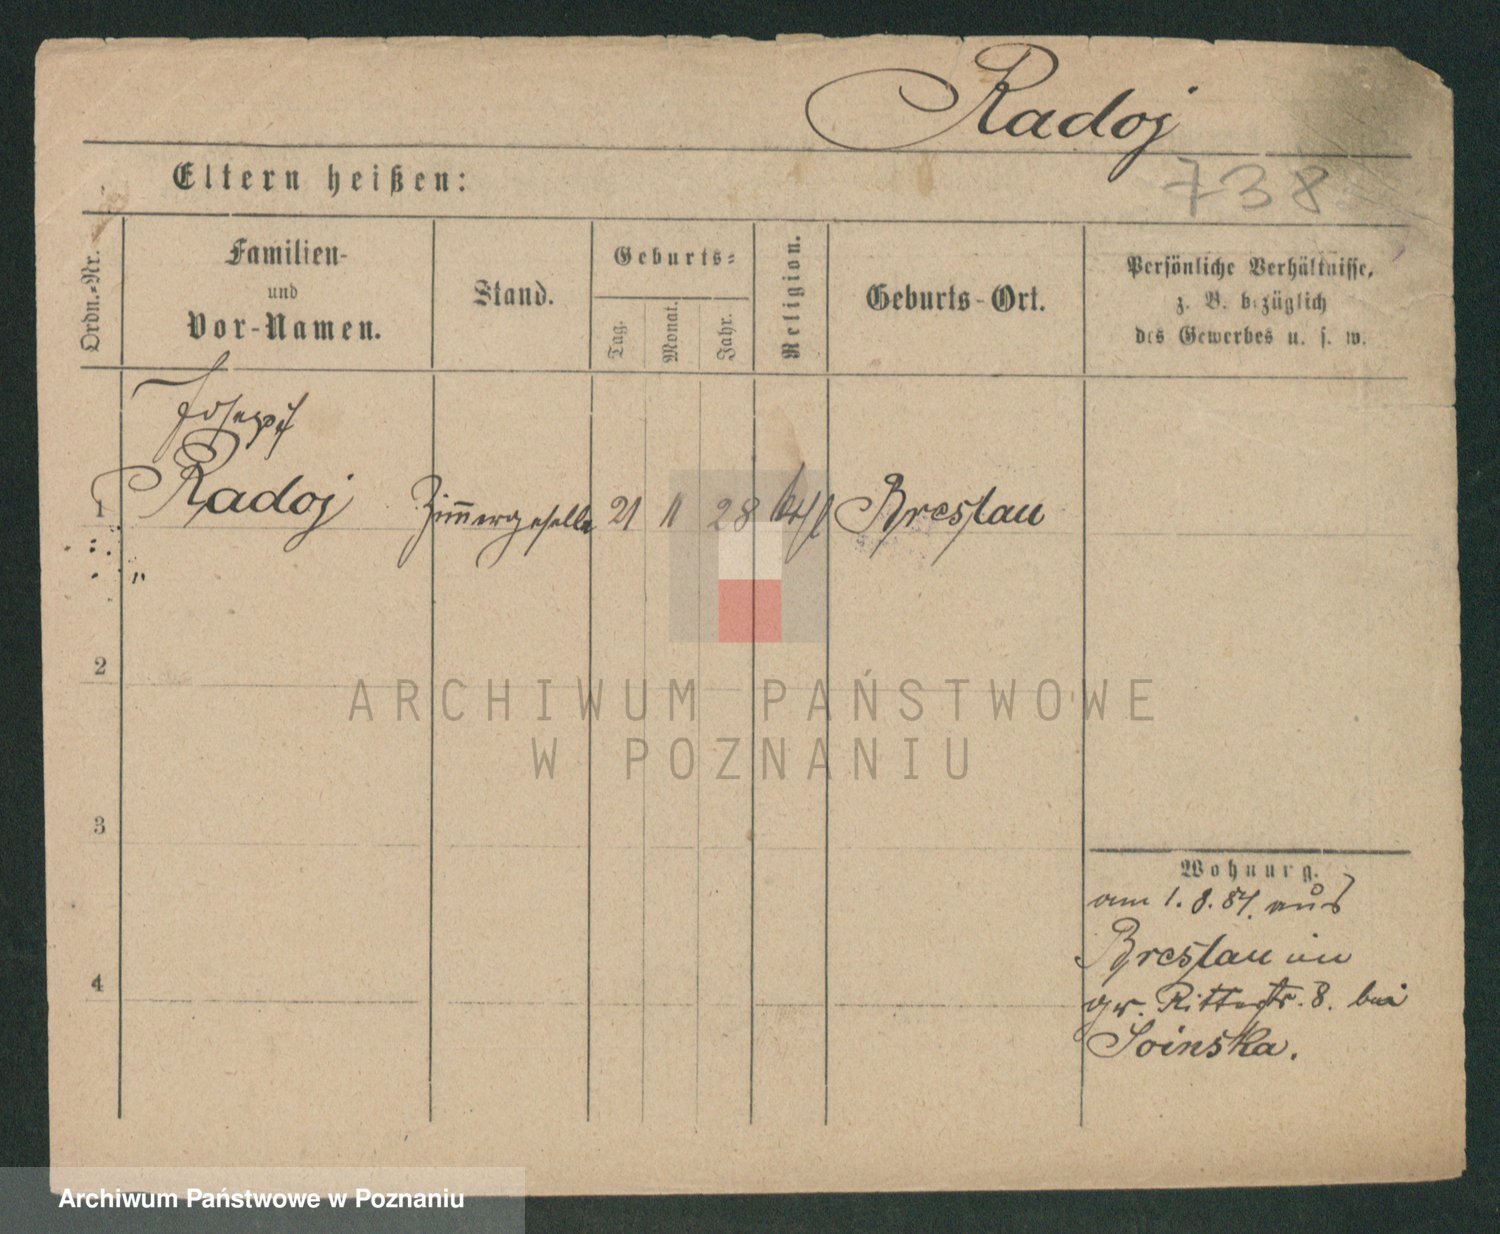 Radoj
Eltern heißen:
738
Ordn.-Nr.
Familien-
und
Vor-Namen.
Stand.
Geburts-
Tag.
Monat.
Jahr.
Religion.
Geburts-Ort.
Persönliche Verhältnisse,
z. B. bezüglich
des Gewerbes u. s. w.
Joseph
1 Radoj Zimmergeselle 21 11 28 kath Breslau
2
3
4
Wohnung.
am 1. 8. 87. aus
Breslau in
gr. Ritterstr. 8. bei
Soinska.
ARCHIWUM PAŃSTWOWE
W POZNANIU
Archiwum Państwowe w Poznaniu